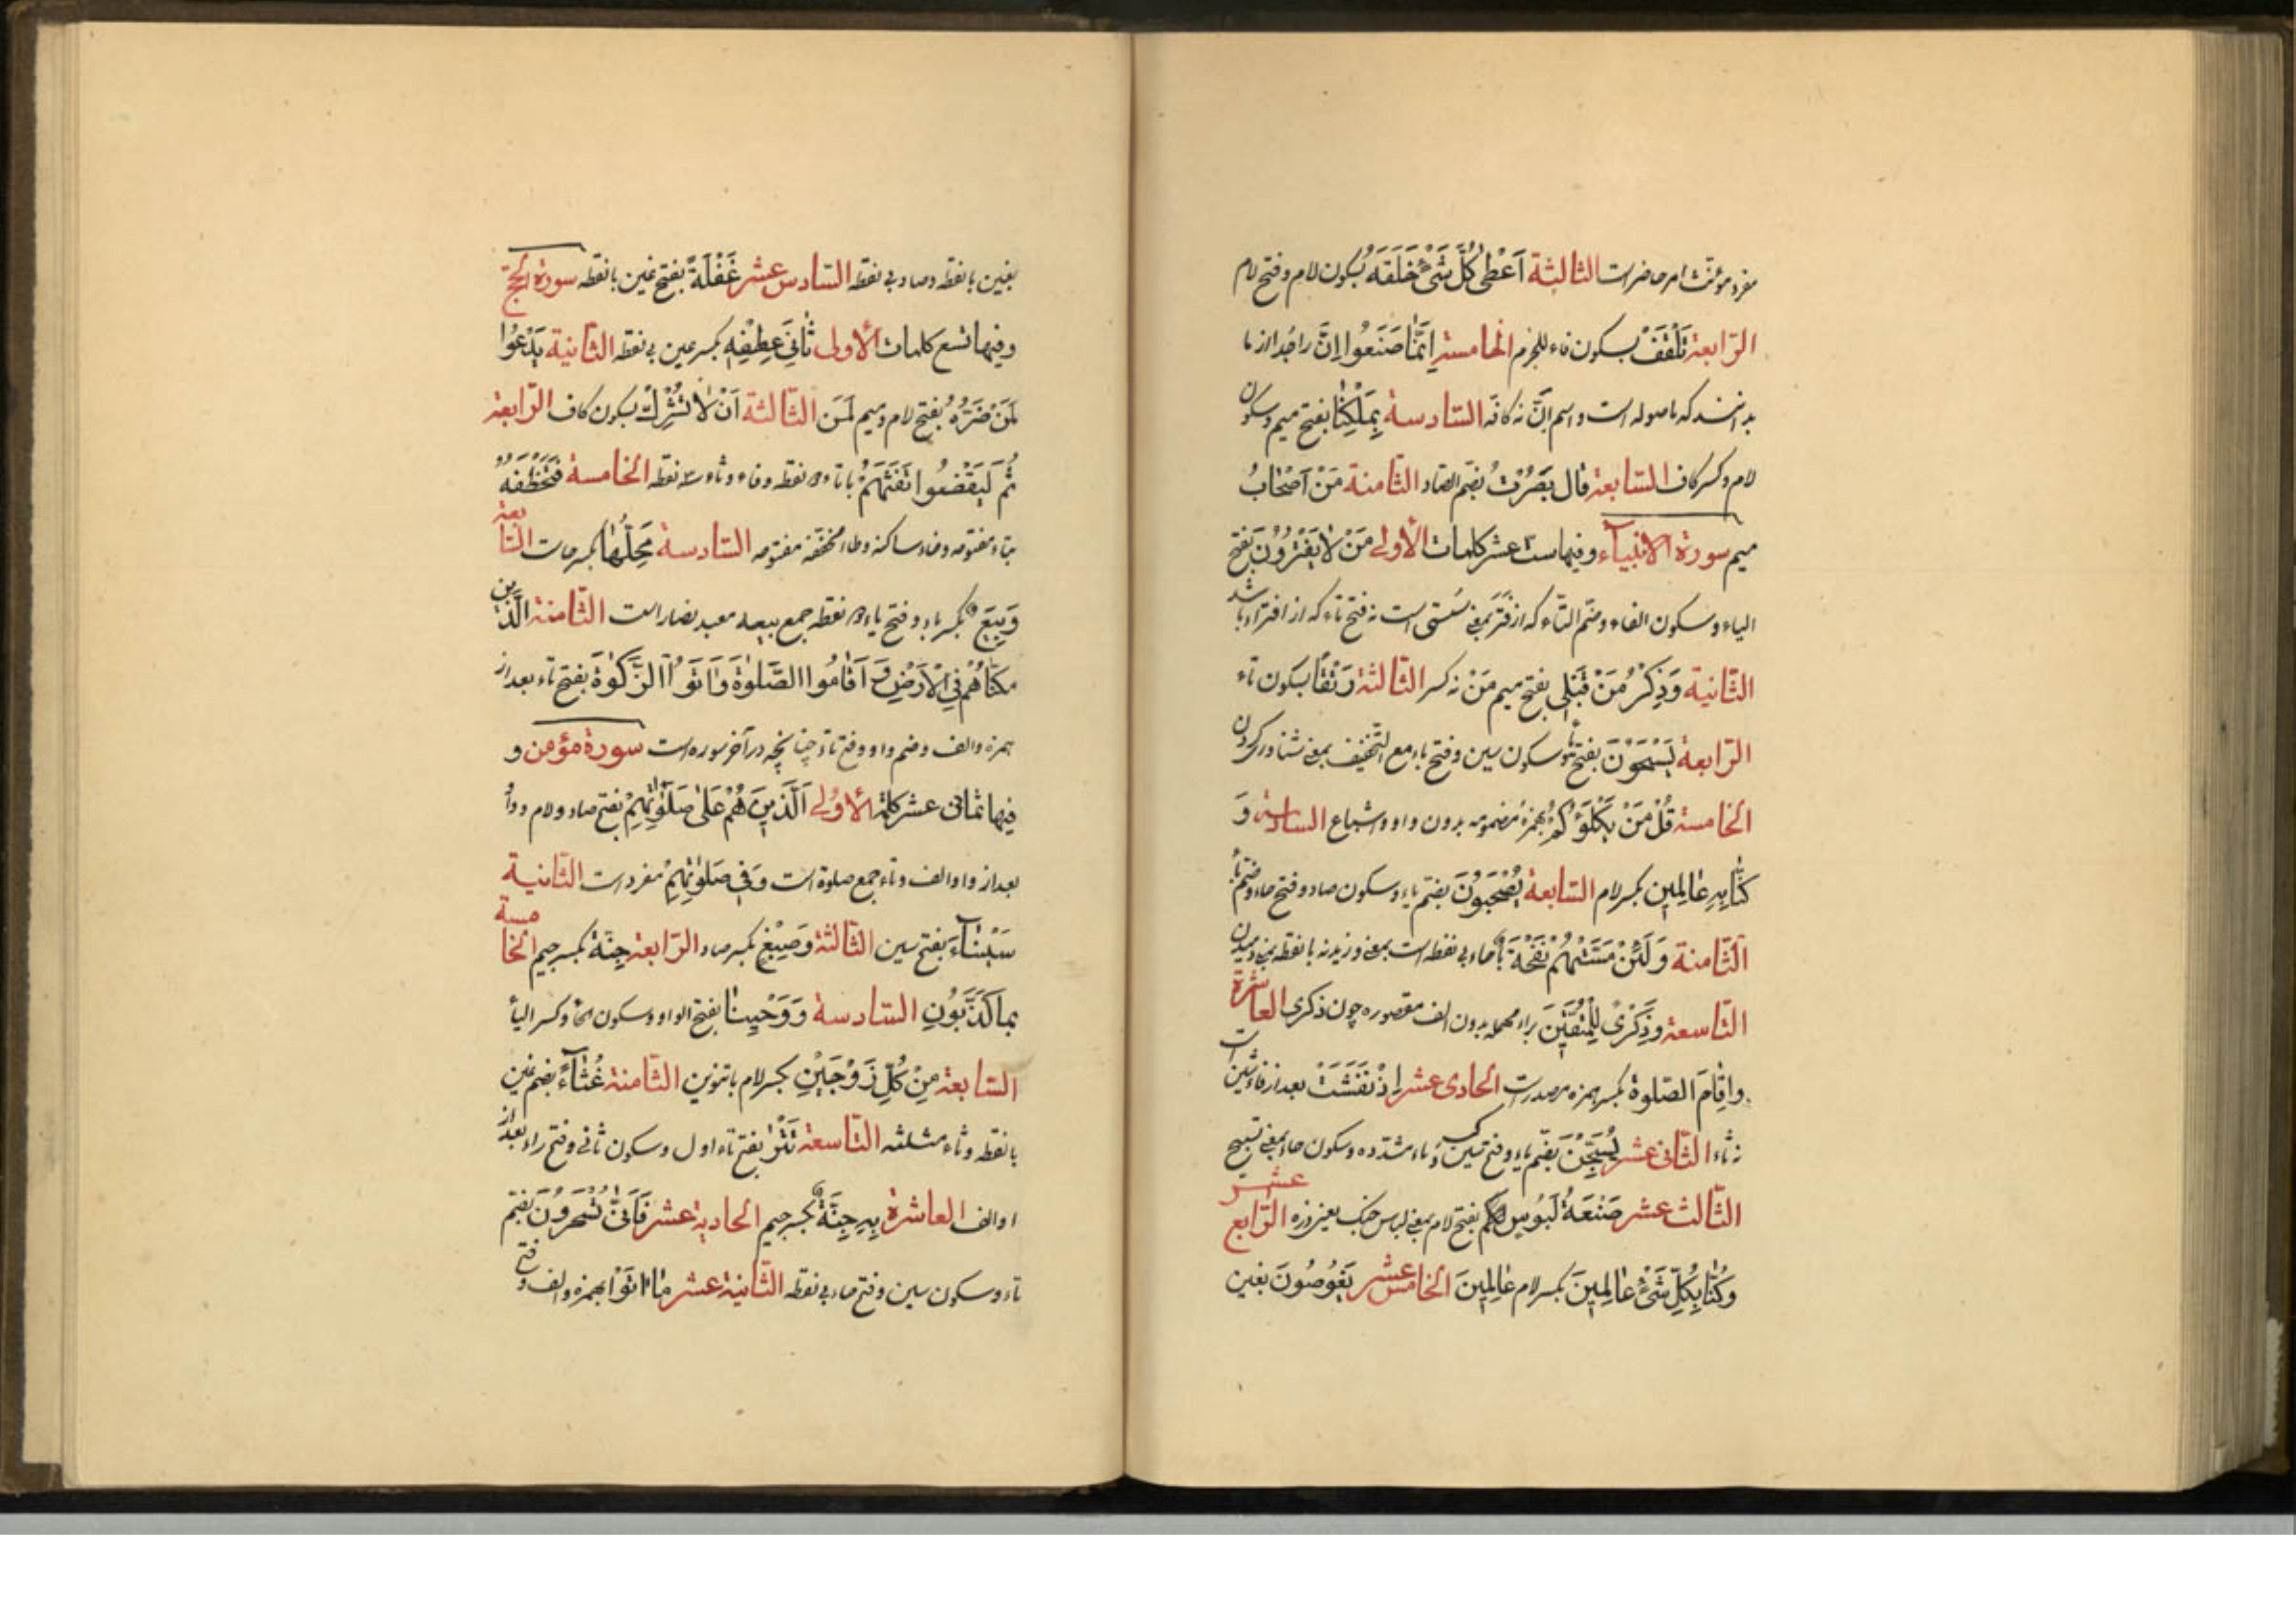 مفرد مؤنث امر حاضر است الثالثة اَعْطٰى كُلَّ شَىْءٍ خَلْقَهُ بسكون لام و فتح لام
الرّابعة تَلْقَفْ بسكون فاء للجزم الخامسة اِنَّمٰا صَنَعُوا اِنَّ را جدا از ما
بدانند كه ماصوله است و اسم اِنَّ نه كافّه السّادسة بِمَلْكِنٰا بفتح ميم و سكون
لام و كسر كاف السّابعة قال بَصُرْتُ بضم الصّاد الثّامنة مَنْ اَصْحٰابُ
ميم سورة الانبيآء و فيها ستة عشر كلمات الأولى مَنْ لاٰ يَفْتُرُونَ بفتح
الياء و سكون الفاء و ضمّ التّاء كه از فَتَرَ بمعنى سُستى است نه فتح تاء كه از افتراء باشد
الثّانية وَ ذِكْرُ مَنْ قَبْلى بفتح ميم مَنْ نه كسر الثّالثة رَتْقًا بسكون تاء
الرّابعة يَسْبَحُونَ بفتح ياء و سكون سين و فتح باء مع التّخفيف بمعنى شنا كردن
الخامسة قُلْ مَنْ يَكْلَؤُكُمْ بهمزهٔ مضمومه بدون واو و اشباع السادسة وَ
كُنّٰا بِهِ عٰالِمِينَ بكسر لام السّابعة يُصْحَبُونَ بضم ياء و سكون صاد و فتح حاء و ضم باء
الثّامنة وَ لَئِنْ مَسَّتْهُمْ نَفْحَةٌ با حاء بى نقطه است بمعنى وزيدن نه با نقطه بمعنى دميدن
التّاسعة وَ ذِكْرًى لِلْمُتَّقِينَ براء مهمله بدون الف مقصوره چون ذكرى العاشرة
و اِقٰامَ الصّلوة بكسر همزه مصدر است الحادى عشر اِذْ نَفَشَتْ بعد از فاء شين است
نه ثاء الثّانى عشر يُسَبِّحْنَ بضم ياء و فتح سين و كسر باء مشدّده و سكون حاء بمعنى تسبيح
الثّالث عشر صَنْعَةَ لَبُوسٍ لكم بفتح لام بمعنى لباس جنگ يعنى زره الرّابع عشر
وَ كُنّٰا بِكُلِّ شَىْءٍ عٰالِمِينَ بكسر لام عٰالِمِينَ الخامس عشر يَغُوصُونَ بغين
بغين با نقطه و صاد بى نقطه السّادس عشر غَفْلَةٍ بفتح غين با نقطه سورة الحجّ
و فيها تسع كلمات الأولى ثٰانِىَ عِطْفِهِ بكسر عين بى نقطه الثّانية يَدْعُوا
لَمَنْ ضَرُّهُ بفتح لام و ميم لَمَن الثّالثة اَنْ لاٰ تُشْرِكْ بسكون كاف الرّابعة
ثُمَّ لْيَقْضُوا تَفَثَهُمْ با تاء دو نقطه و فاء و ثاء سه نقطه الخامسة فَتَخْطَفُهُ
بتاء مفتوحه و خاء ساكنه و طاء مخفّفه مفتوحه السّادسة مَحِلُّهٰا بكسر حا است السّابعة
وَ بِيَعٌ بكسر باء و فتح ياء دو نقطه جمع بيعه معبد نصارا است الثّامنة الَّذينَ
مَكَّنّٰاهُمْ فِى الْاَرْضِ وَ اَقٰامُوا الصَّلوٰةَ وَ اٰتَوُا الزَّكوٰةَ بفتح تاء بعد از
همزه و الف و ضم واو و فتح تاء چنانچه در آخر سوره است سورة مؤمن و
فيها ثمانى عشر كلمة الأولى اَلَّذينَ هُمْ عَلىٰ صَلَوٰاتِهِمْ بفتح صاد و لام و واو
بعد از واو الف و تاء جمع صلوة است وَ فى صَلوٰتِهِمْ مفرد است الثّانية
سَيْنٰآءَ بفتح سين الثّالثة وَ صِبْغٍ بكسر صاد الرّابعة جِنّةٌ بكسر جيم الخامسة
بِمٰا كَذَّبُونِ السّادسة وَ وَحْيِنٰا بفتح الواو و سكون الحاء و كسر الياء
السّابعة مِنْ كُلٍّ زَوْجَيْنِ بكسر لام با تنوين الثّامنة غُثٰآءً بضم غين
با نقطه و ثاء مثلثه التّاسعة تَتْرٰا بفتح تاء اول و سكون ثانى و فتح راء بعد از
او الف العاشرة بِهِ جِنَّةٌ بكسر جيم الحادية عشر فَاَنّٰى تُسْحَرُونَ بضم
تاء و سكون سين و فتح حاء بى نقطه الثّانية عشر مٰا اٰتَوْا بهمزه و الف و فتح